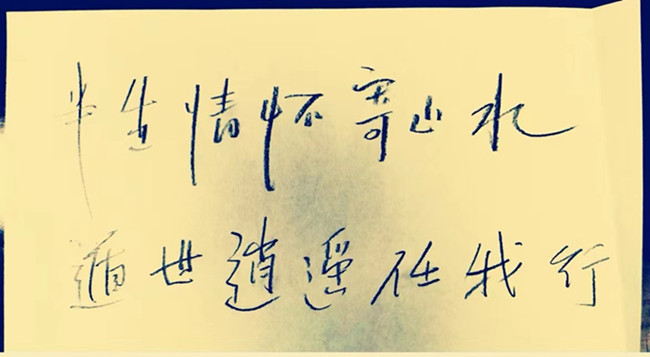 半生情怀寄山水
遁世逍遥任我行